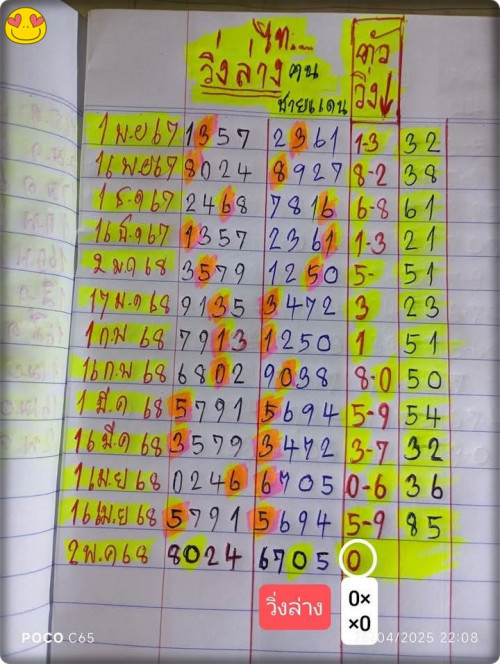 ไท....
วิ่งล่าง คน
ชายแดน
ตัว
วิ่ง
1 พ.ย 67 1357 2361 1-3 32
16 พ.ย 67 8024 8927 8-2 38
1 ธ.ค 67 2468 7816 6-8 61
16 ธ.ค 67 1357 2361 1-3 21
2 ม.ค 68 3579 1250 5- 51
17 ม.ค 68 9135 3472 3 23
1 ก.พ 68 7913 1250 1 51
16 ก.พ 68 6802 9038 8-0 50
1 มี.ค 68 5791 5694 5-9 54
16 มี.ค 68 3579 3472 3-7 32
1 เม.ย 68 0246 6705 0-6 36
16 เม.ย 68 5791 5694 5-9 85
2 พ.ค 68 8024 6705 0
วิ่งล่าง
0×
×0
POCO C65
/04/2025 22:08